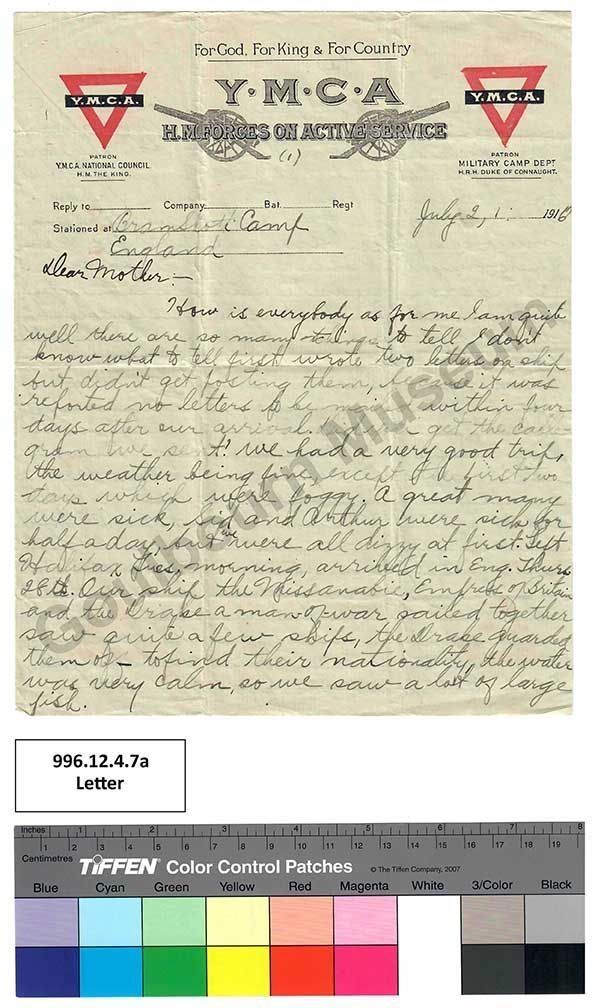 For God, For King & For Country
Y·M·C·A
H.M. FORCES ON ACTIVE SERVICE
(1)
Y.M.C.A.
PATRON
Y.M.C.A. NATIONAL COUNCIL
H.M. THE KING.
Y.M.C.A.
PATRON
MILITARY CAMP DEPT
H.R.H. DUKE OF CONNAUGHT.
Reply to Company Bat. Regt
Stationed at Bramshott Camp
England
July 2, 1916
Dear Mother:-
How is everybody as for me I am quite
well there are so many things to tell I don't
know what to tell first wrote two letters on ship
but didn't get posting them, because it was
reported no letters to be mailed within four
days after our arrival. get the cable
gram we sent! we had a very good trip,
the weather being fine except the first two
days which were foggy. A great many
were sick, Sid and Arthur were sick for
half a day, but we were all dizzy at first. Left
Halifax Tues. morning, arrived in Eng. Thurs
28th. Our ship the Missanabie, Empress of Britain
and the Drake a man-of-war sailed together
saw quite a few ships, the Drake guarded
them to find their nationality, the water
was very calm, so we saw a lot of large
fish.
Goulbourn Museum
996.12.4.7a
Letter
Inches 1 2 3 4 5 6 7 8
Centimetres 1 2 3 4 5 6 7 8 9 10 11 12 13 14 15 16 17 18 19
TIFFEN Color Control Patches © The Tiffen Company, 2007
Blue Cyan Green Yellow Red Magenta White 3/Color Black